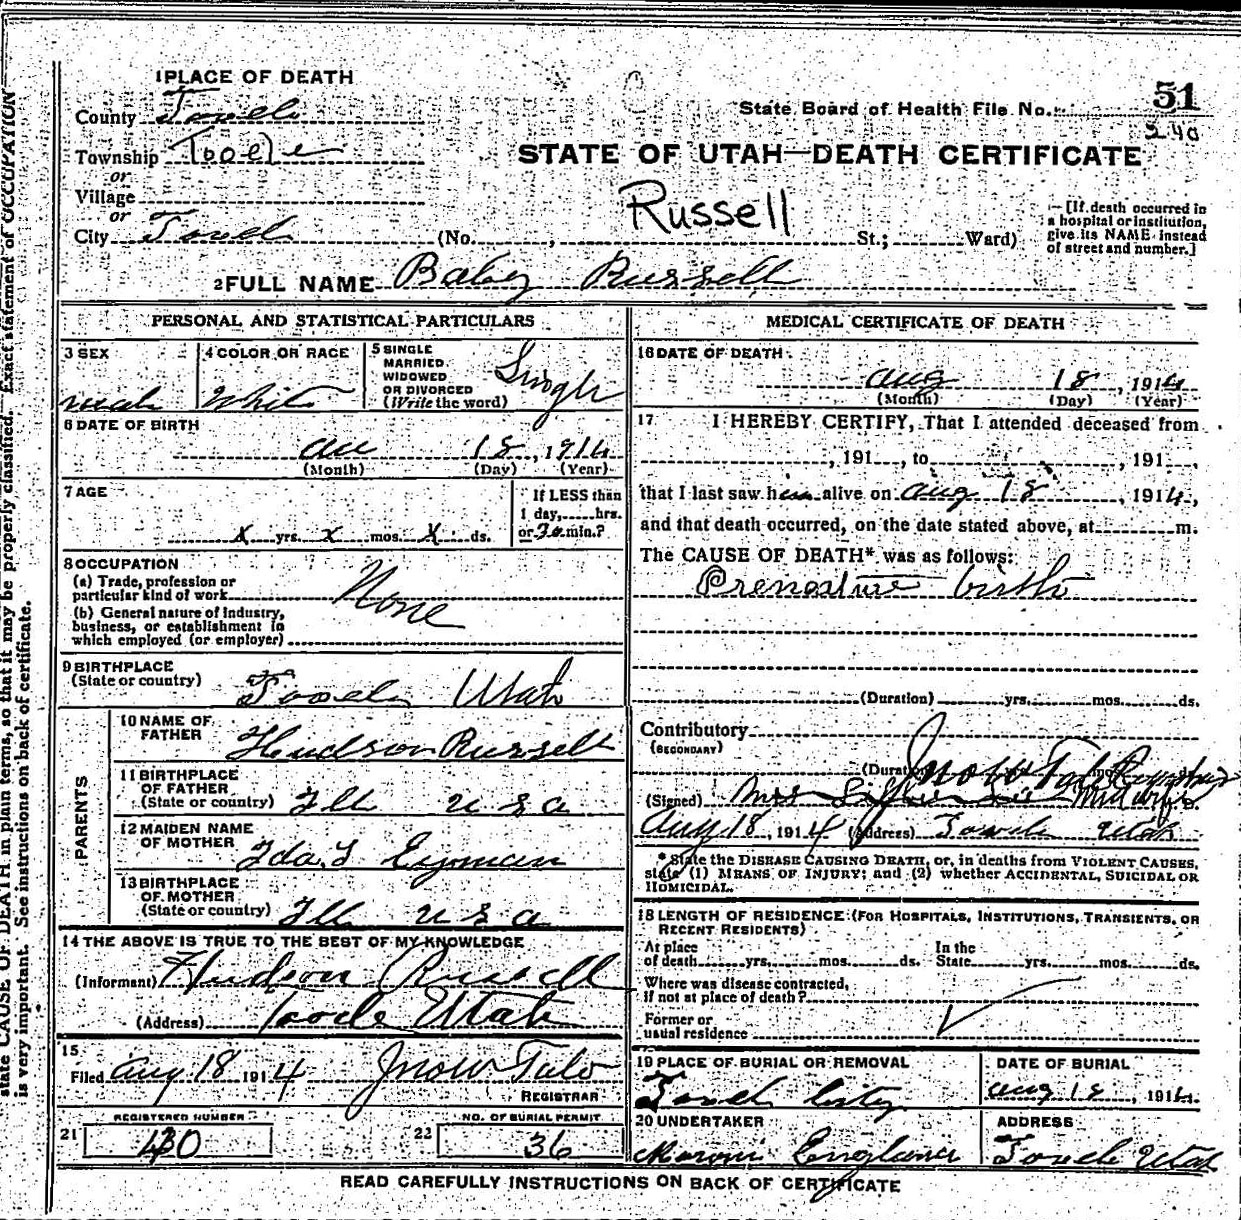 1 PLACE OF DEATH
State Board of Health File No. 51
240
County Tooele
Township Tooele
or
Village
or
City Tooele
STATE OF UTAH—DEATH CERTIFICATE
Russell
(No. , St.; Ward)
[If death occurred in a hospital or institution, give its NAME instead of street and number.]
2 FULL NAME Baby Russell
PERSONAL AND STATISTICAL PARTICULARS
3 SEX male
4 COLOR OR RACE White
5 SINGLE MARRIED WIDOWED OR DIVORCED (Write the word) Single
6 DATE OF BIRTH
Au 18, 1914
(Month) (Day) (Year)
7 AGE
x yrs. x mos. x ds.
If LESS than 1 day, hrs. or 30 min.?
8 OCCUPATION
(a) Trade, profession or particular kind of work
None
(b) General nature of industry, business, or establishment in which employed (or employer)
9 BIRTHPLACE
(State or country) Tooele Utah
PARENTS
10 NAME OF FATHER Hudson Russell
11 BIRTHPLACE OF FATHER (State or country) Ill U S A
12 MAIDEN NAME OF MOTHER Ida I Eyman
13 BIRTHPLACE OF MOTHER (State or country) Ill U S A
14 THE ABOVE IS TRUE TO THE BEST OF MY KNOWLEDGE
(Informant) Hudson Russell
(Address) Tooele Utah
15
Filed Aug 18 1914
REGISTRAR
REGISTERED NUMBER
21 430
NO. OF BURIAL PERMIT
22 36
MEDICAL CERTIFICATE OF DEATH
16 DATE OF DEATH
Aug 18, 1914
(Month) (Day) (Year)
17 I HEREBY CERTIFY, That I attended deceased from
, 191 , to , 191 ,
that I last saw him alive on Aug 18, 1914,
and that death occurred, on the date stated above, at m.
The CAUSE OF DEATH* was as follows:
Premature birth
(Duration) yrs. mos. ds.
Contributory
(SECONDARY)
(Duration)
(Signed) Mrs
Aug 18, 1914 (Address) Tooele Utah
* State the DISEASE CAUSING DEATH, or, in deaths from VIOLENT CAUSES, state (1) MEANS OF INJURY; and (2) whether ACCIDENTAL, SUICIDAL OR HOMICIDAL.
18 LENGTH OF RESIDENCE (FOR HOSPITALS, INSTITUTIONS, TRANSIENTS, OR RECENT RESIDENTS)
At place of death yrs. mos. ds. In the State yrs. mos. ds.
Where was disease contracted, if not at place of death?
Former or usual residence
19 PLACE OF BURIAL OR REMOVAL
Tooele City
DATE OF BURIAL
Aug 18, 1914
20 UNDERTAKER
Moroni England
ADDRESS
Tooele Utah
READ CAREFULLY INSTRUCTIONS ON BACK OF CERTIFICATE
state CAUSE OF DEATH in plain terms, so that it may be properly classified. Exact statement of OCCUPATION
is very important. See instructions on back of certificate.